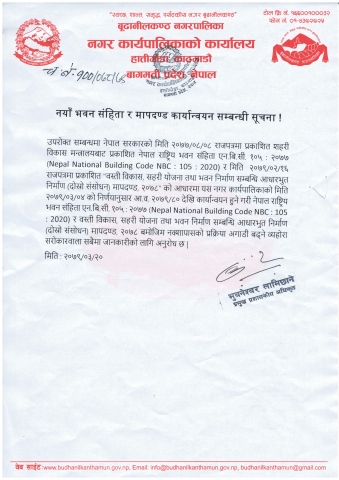 "स्वच्छ, शान्त, समृद्ध, पर्यटकीय नगर बूढानीलकण्ठ"
बूढानीलकण्ठ नगरपालिका
नगर कार्यपालिकाको कार्यालय
हात्तीगौंडा, काठमाडौं
बागमती प्रदेश, नेपाल
नयाँ भवन संहिता र मापदण्ड कार्यान्वयन सम्बन्धी सूचना !
उपरोक्त सम्बन्धमा नेपाल सरकारको मिति २०७७/०८/०८ राजपत्रमा प्रकाशित शहरी
विकास मन्त्रालयबाट प्रकाशित नेपाल राष्ट्रिय भवन संहिता एन.बि.सी. १०५ : २०७७
(Nepal National Building Code NBC : 105 : 2020) र मिति २०७९/०२/१६
राजपत्रमा प्रकाशित "वस्ती विकास, सहरी योजना तथा भवन निर्माण सम्बन्धि आधारभूत
निर्माण (दोस्रो संसोधन) मापदण्ड, २०७८" को आधारमा यस नगर कार्यपालिकाको मिति
२०७९/०३/०४ को निर्णयानुसार आ.व. २०७९/८० देखि कार्यान्वयन हुने गरी नेपाल राष्ट्रिय
भवन संहिता एन.बि.सी. १०५ : २०७७ (Nepal National Building Code NBC : 105
: 2020) र वस्ती विकास, सहरी योजना तथा भवन निर्माण सम्बन्धि आधारभूत निर्माण
(दोस्रो संसोधन) मापदण्ड, २०७८ बमोजिम नक्शापासको प्रक्रिया अगाडी बढ्ने व्यहोरा
सरोकारवाला सबैमा जानकारीको लागि अनुरोध छ |
मिति : २०७९/०३/२०
भुवनेश्वर लामिछाने
प्रमुख प्रशासकीय अधिकृत
वेब साईट: www.budhanilkanthamun.gov.np, Email: info@budhanilkanthamun.gov.np, budhanilkanthamun@gmail.com